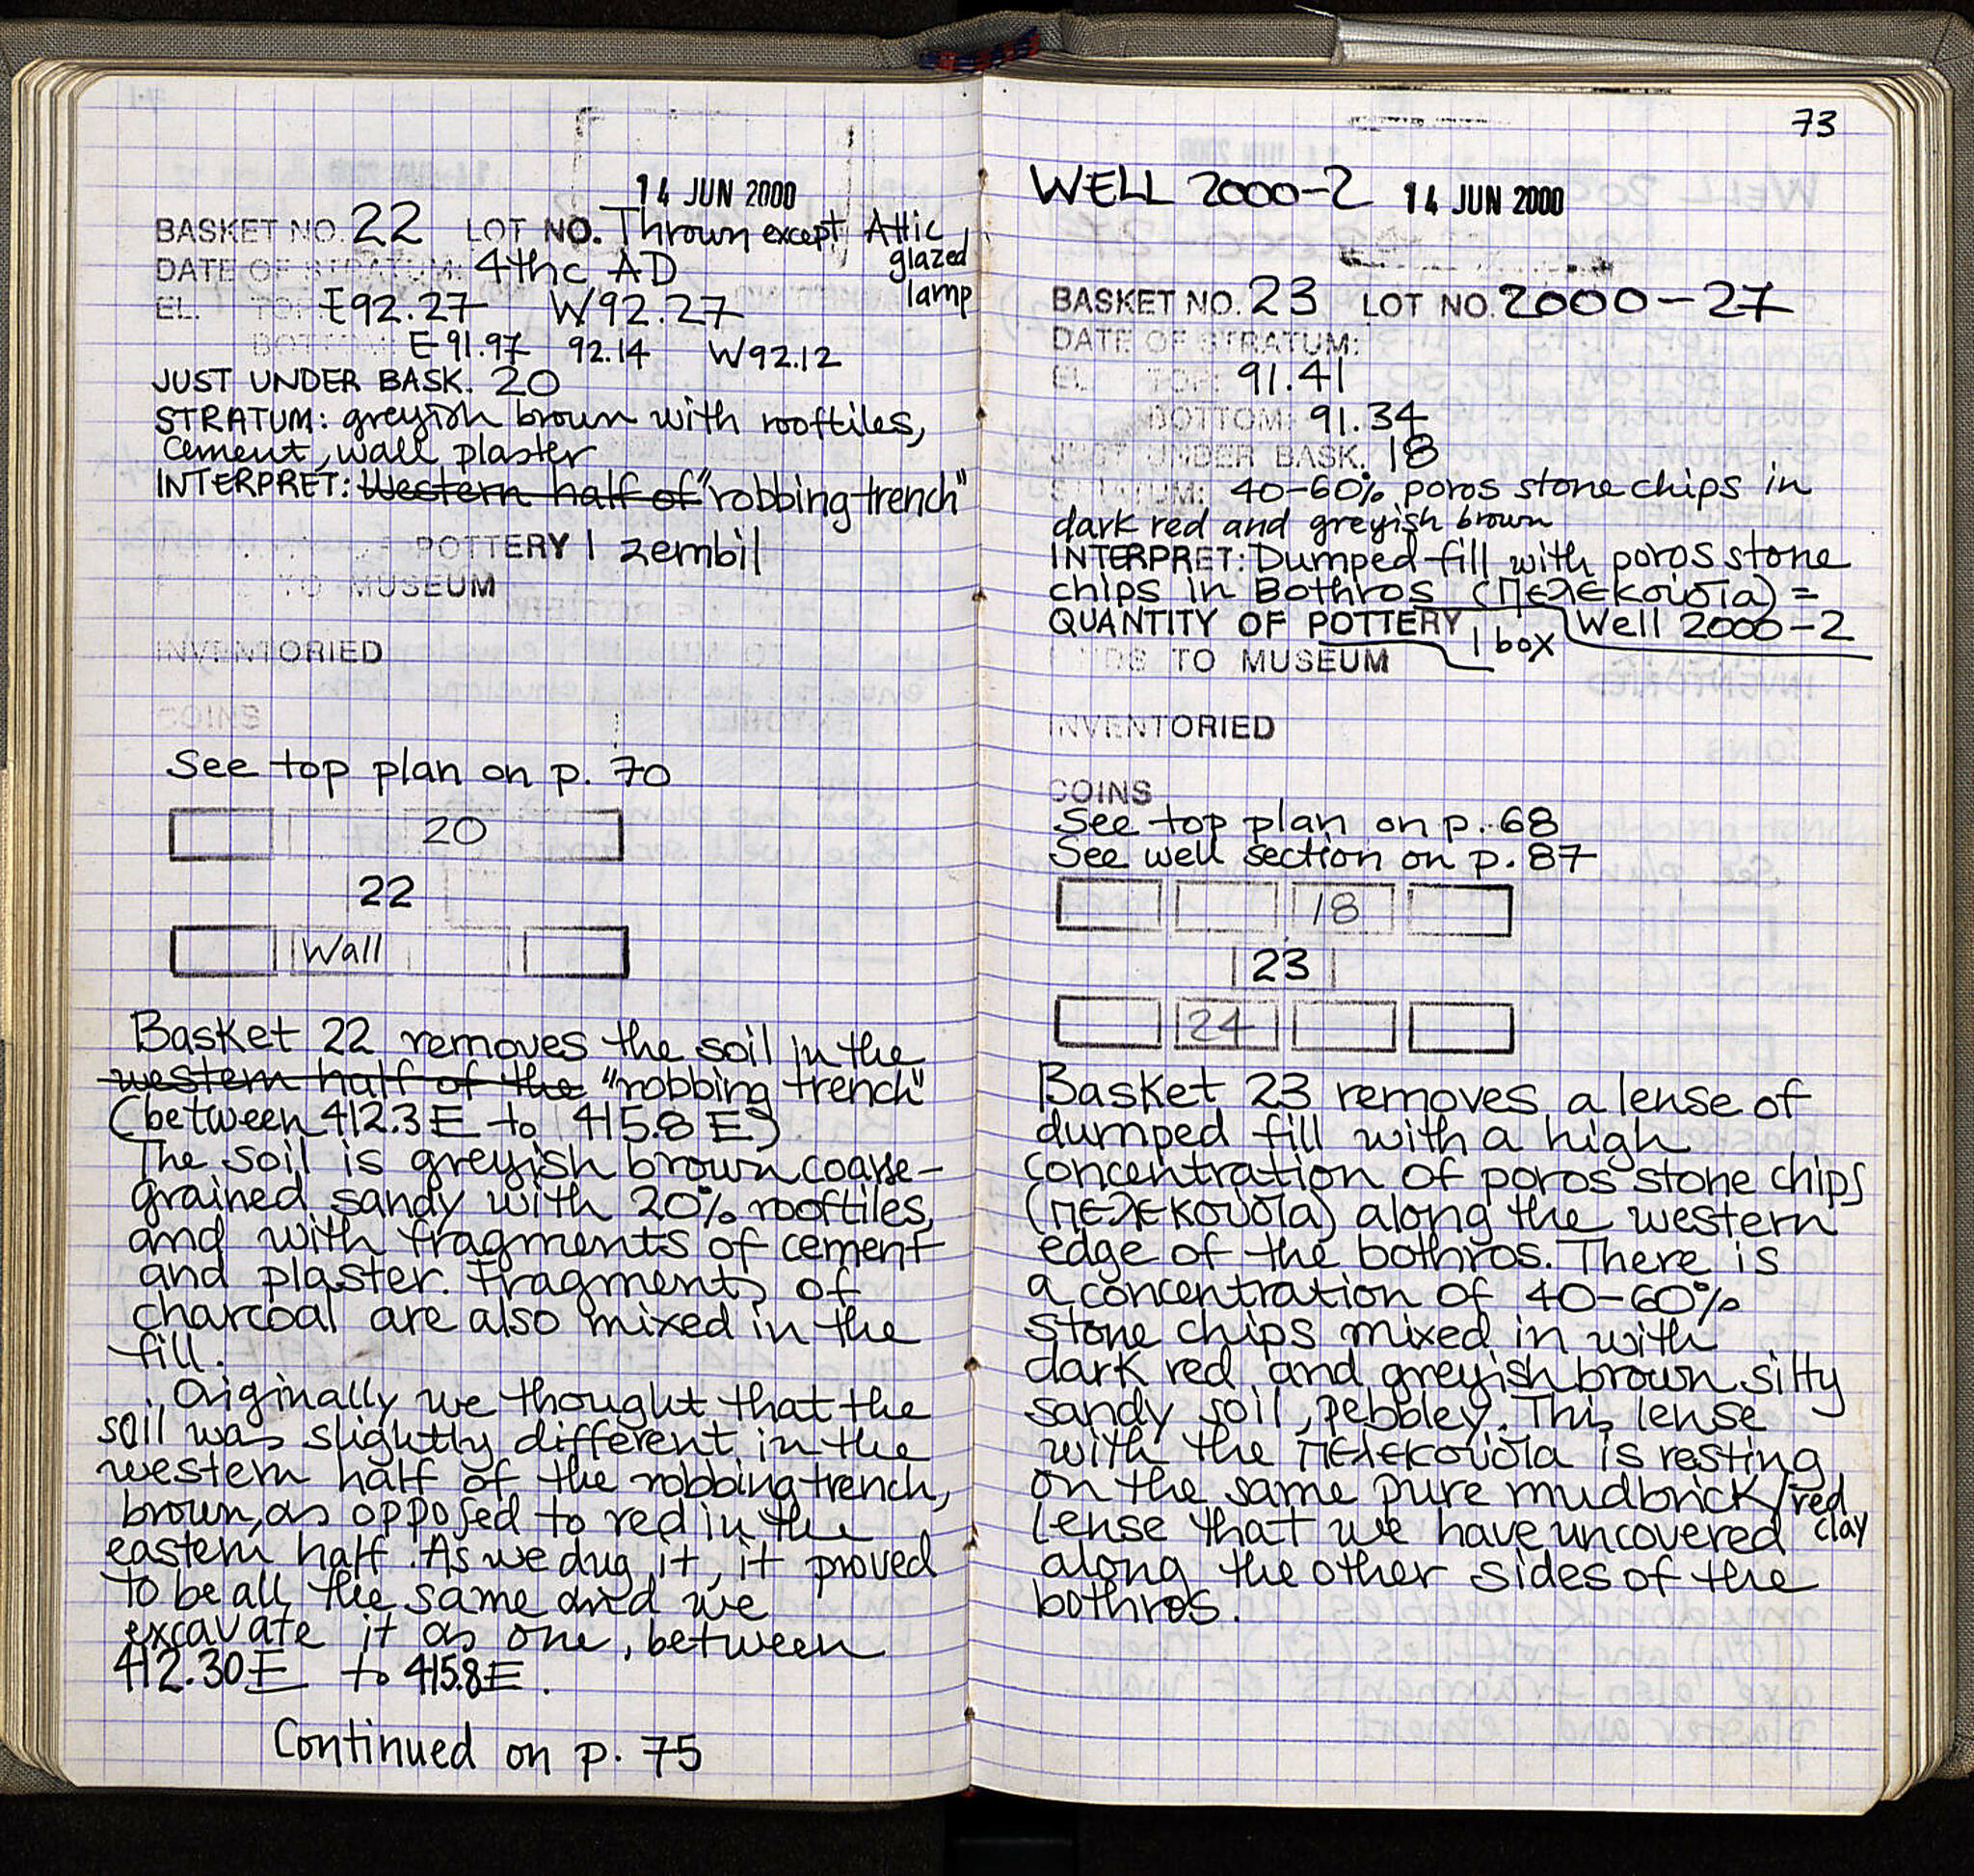 14 JUN 2000
BASKET NO. 22 LOT NO. Thrown except Attic
glazed
lamp
DATE OF STRATUM: 4thc AD
EL. TOP: E92.27 W92.27
BOTTOM: E91.97 92.14 W92.12
JUST UNDER BASK. 20
STRATUM: greyish brown with rooftiles,
cement, wall plaster
INTERPRET: Western half of "robbing trench"
POTTERY 1 zembil
TO MUSEUM
INVENTORIED
COINS
See top plan on p. 70
20
22
Wall
Basket 22 removes the soil in the
western half of the "robbing trench"
(between 412.3 E to 415.8 E)
The soil is greyish brown coarse-
grained sandy with 20% rooftiles,
and with fragments of cement
and plaster. Fragments of
charcoal are also mixed in the
fill.
Originally we thought that the
soil was slightly different in the
western half of the robbing trench,
brown, as opposed to red in the
eastern half. As we dug it, it proved
to be all the same and we
excavate it as one, between
412.30 E to 415.8 E.
Continued on p. 75
73
WELL 2000-2 14 JUN 2000
BASKET NO. 23 LOT NO. 2000-27
DATE OF STRATUM:
EL. TOP: 91.41
BOTTOM: 91.34
JUST UNDER BASK. 18
STRATUM: 40-60% poros stone chips in
dark red and greyish brown
INTERPRET: Dumped fill with poros stone
chips in Bothros (πελεκούδια) =
Well 2000-2
QUANTITY OF POTTERY 1 box
FINDS TO MUSEUM
INVENTORIED
COINS
See top plan on p. 68
See well section on p. 87
18
23
24
Basket 23 removes a lense of
dumped fill with a high
concentration of poros stone chips
(πελεκούδια) along the western
edge of the bothros. There is
a concentration of 40-60%
stone chips mixed in with
dark red and greyish brown silty
sandy soil, pebbley. This lense
with the πελεκούδια is resting
on the same pure mudbrick/red
clay
lense that we have uncovered
along the other sides of the
bothros.